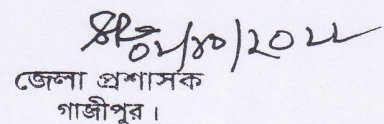 ০২/১০/২০২২
জেলা প্রশাসক
গাজীপুর।